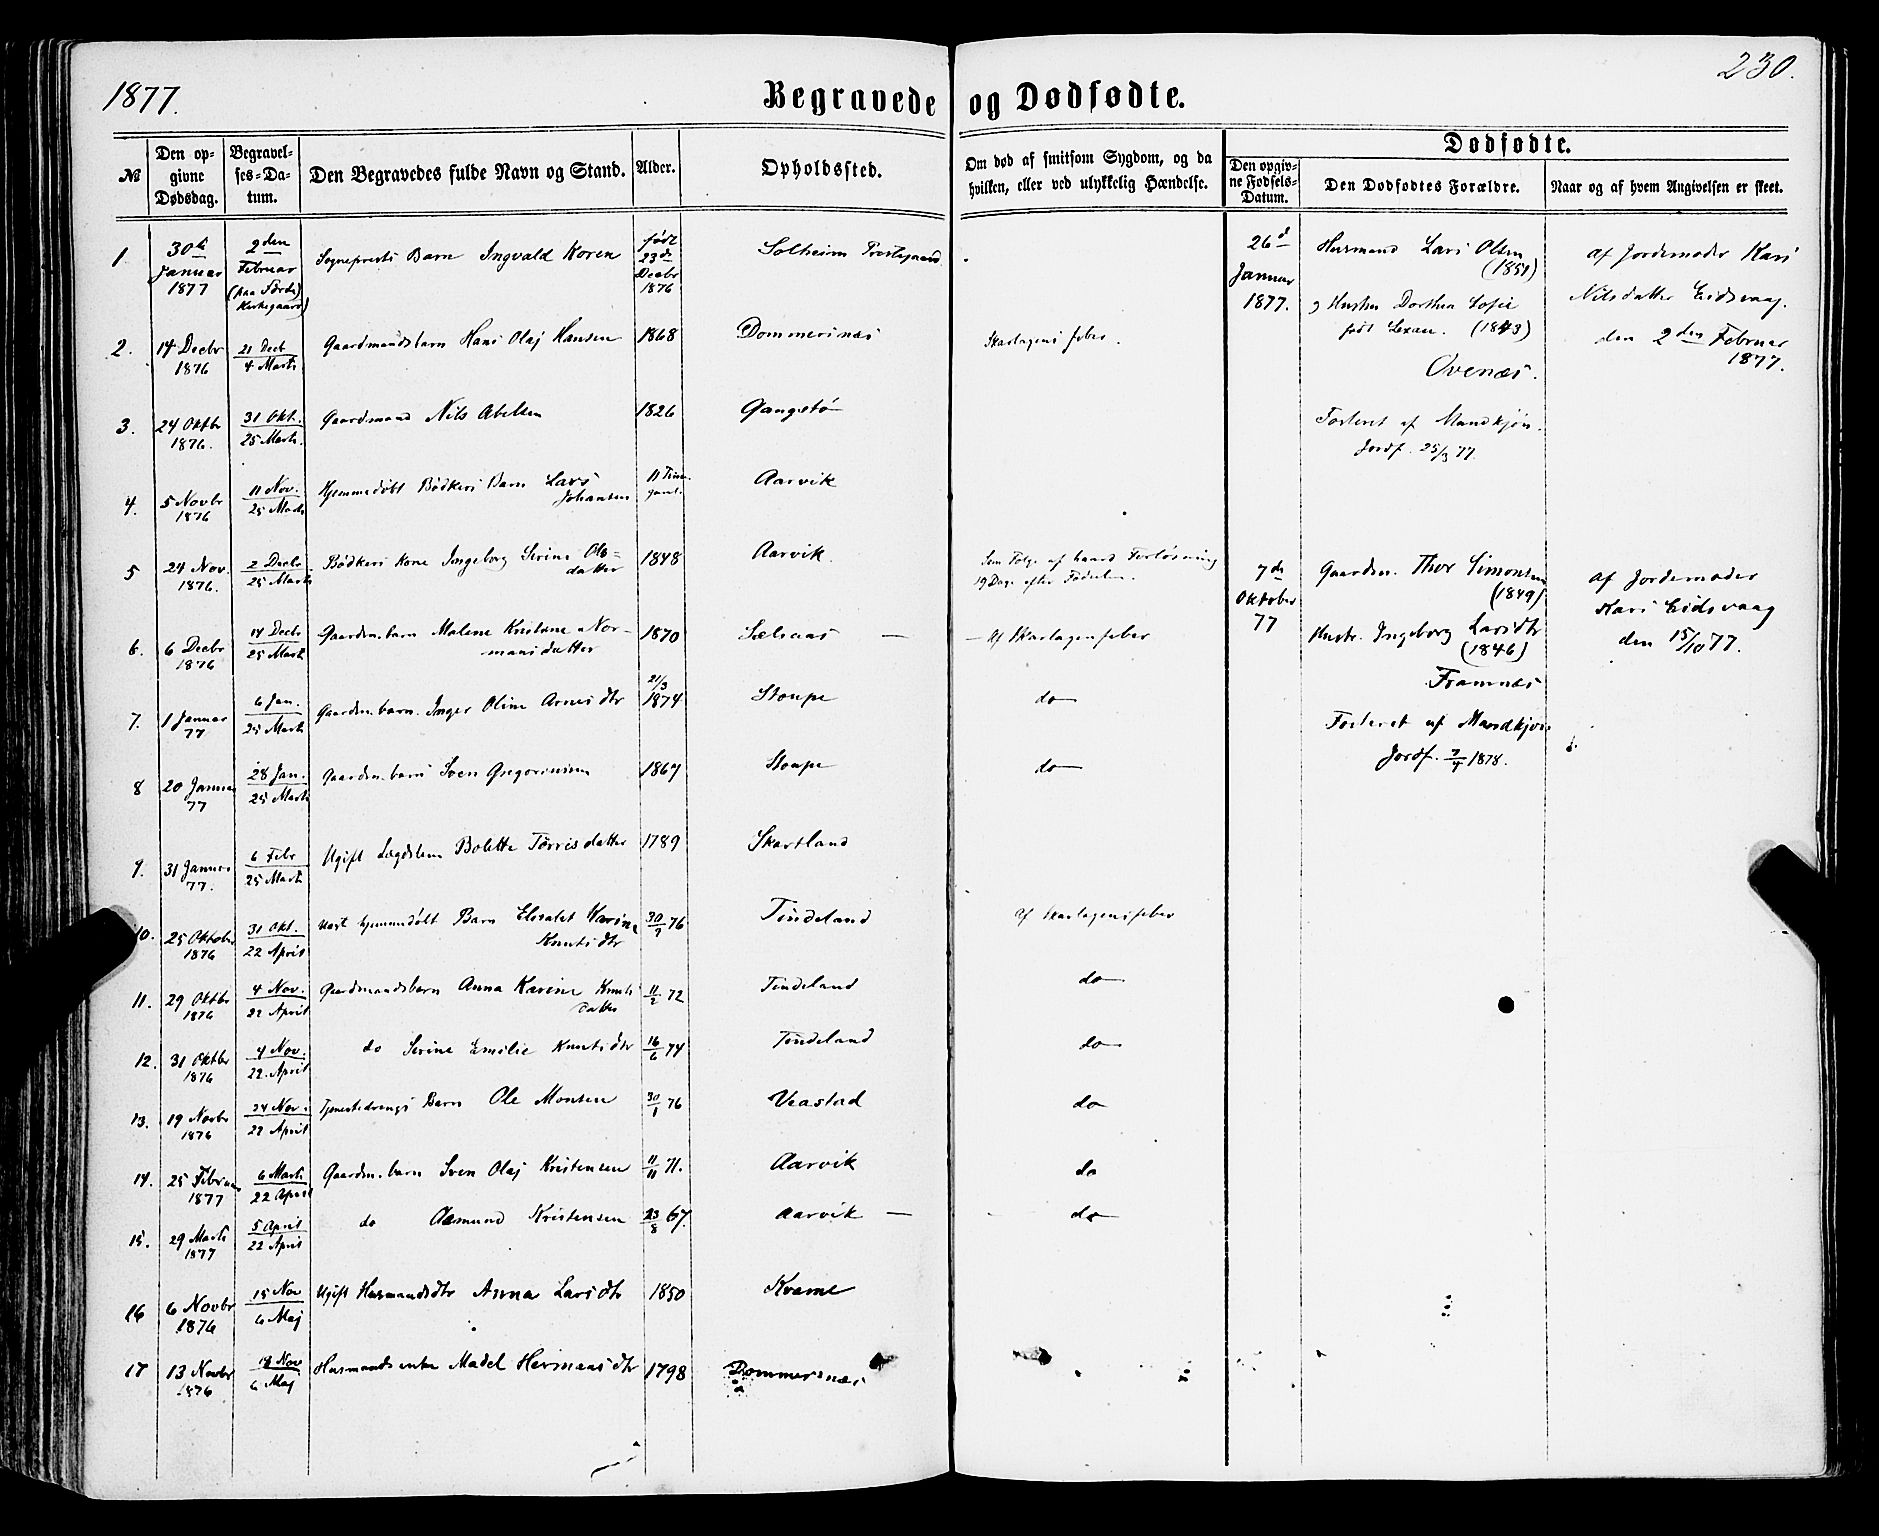 1877.
230.
Begravede og Dødfødte.
№
Den opgivne Dødsdag.
Begravelses-Datum.
Den Begravedes fulde Navn og Stand.
Alder.
Opholdssted.
Om død af smitsom Sygdom, og da hvilken, eller ved ulykkelig Hændelse.
Dødfødte.
Den opgivne Fødsels-Datum.
Den Dødfødtes Forældre.
Naar og af hvem Angivelsen er skeet.
1 30te Januar 1877 2den Februar (paa Førde Kirkegaard) Sogneprests Barn Ingvald Koren født 23de Decbr 1876 Solheim Prestegaard
2. 14 Decbr 1876 21 Decb 4 Marts Gaardmandsbarn Hans Olaj Hansen 1868 Dommersnæs Skarlagensfeber.
3. 24 Oktbr 1876. 31 Okt. 25 Marts. Gaardmand Nils Abelsen 1826 Gangstø
4. 5 Novbr 1876 11 Nov. 25 Marts Hjemmedøbt Bødkers Barn Lars Johansen 11 Timer gaml. Aarvik
5 24 Nov. 1876. 2 Decbr 25 Marts Bødkers Kone Ingeborg Serine Olsdatter 1848 Aarvik. Som Følge af haard Forløsning 19 Dage efter Fødselen.
6. 6 Decbr 1876 14 Decbr 25 Marts Gaardm.barn Malene Kristine Normansdatter 1870 Sælsaas — — Af Skarlagensfeber
7. 1 Januar 77 6 Jan. 25 Marts Gaardm.barn. Inger Oline Arnesdtr 21/3 1874 Stoupe do
8 20 Januar 77 28 Jan. 25 Marts Gaardm.barn Sven Gregoriussen 1867 Stoupe do
9. 31 Januar 77. 6 Febr 25 Marts Ugift Lægdslem Bolette Tørrisdatter 1789 Skartland
10. 25 Oktober 1876 31 Okt. 22 April hjemmedøbt Barn Elisabet Karine Knutsdtr 30/9 76 Tindeland af Skarlagensfeber
11. 29 Oktbr 1876 4 Nov. 22 April Gaardmandsbarn Anna Karine Knutsdatter 11/2 72 Tindeland do
12. 31 Oktbr 1876 4 Nov. 22. April do Serine Emilie Knutsdtr 16/6 74 Tindeland do
13. 19 Novbr 1876 24 Nov. 22 April Tjenestedrengs Barn Ole Monsen 30/1 76 Veastad do
14. 25 Februar 1877 6 Marts 22 April Gaardm.barn Sven Olaj Kristensen 11/11 71. Aarvik do
15. 29 Marts 1877 5 April 22 April do Aamund Kristensen 23/8 67. Aarvik — do
16 6 Novbr 1876 15 Nov 6 Maj Ugift Husmandsdtr Anna Larsdtr 1850 Kvame
17 13 Novbr 1876 18 Nov 6 Maj Husmandsenke Madel Hermansdtr 1798 Dommersnæs
26de Januar 1877.
Husmand Lars Olsen (1851)
og Hustru Dorthea Sofie
født Lexau. (1843)
Ovenæs.
Fosteret af Mandkjøn.
Jordf. 25/3 77.
af Jordemoder Kari
Nilsdatter Eidsvaag.
den 2den Februar
1877.
7de Oktober 77
Gaardm. Thor Simonsen
(1849)
Hustr. Ingeborg Larsdtr
(1846)
Framnæs
Fosteret af Mandkjøn
Jordf. 7/4 1878.
af Jordemoder
Kari Eidsvaag
den 15/10 77.